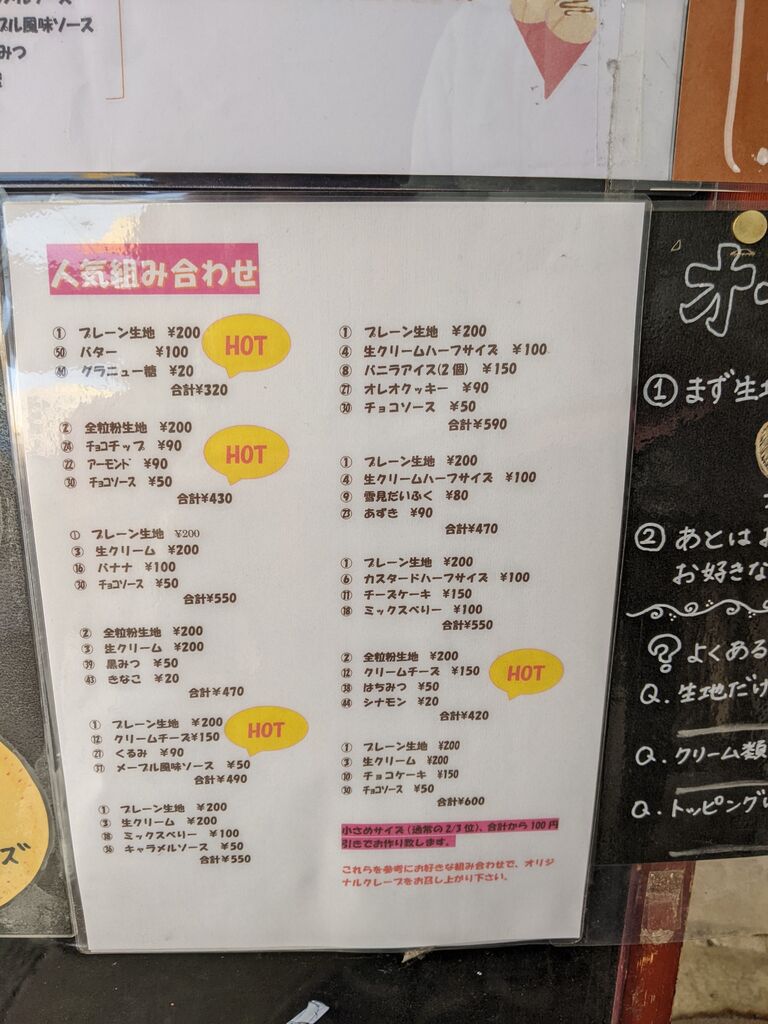 ブル風味ソース
みつ
人気組み合わせ
① プレーン生地 ¥200
㊿ バター ¥100
㊵ グラニュー糖 ¥20
合計¥320
HOT
② 全粒粉生地 ¥200
㉔ チョコチップ ¥90
㉒ アーモンド ¥90
㉚ チョコソース ¥50
合計¥430
HOT
① プレーン生地 ¥200
③ 生クリーム ¥200
⑯ バナナ ¥100
㉚ チョコソース ¥50
合計¥550
② 全粒粉生地 ¥200
③ 生クリーム ¥200
㊴ 黒みつ ¥50
㊸ きなこ ¥20
合計¥470
① プレーン生地 ¥200
⑫ クリームチーズ¥150
㉑ くるみ ¥90
㊲ メープル風味ソース ¥50
合計¥490
HOT
① プレーン生地 ¥200
③ 生クリーム ¥200
⑱ ミックスベリー ¥100
㊱ キャラメルソース ¥50
合計¥550
① プレーン生地 ¥200
④ 生クリームハーフサイズ ¥100
⑧ バニラアイス(2個) ¥150
㉗ オレオクッキー ¥90
㉚ チョコソース ¥50
合計¥590
① プレーン生地 ¥200
④ 生クリームハーフサイズ ¥100
⑨ 雪見だいふく ¥80
㉓ あずき ¥90
合計¥470
① プレーン生地 ¥200
⑥ カスタードハーフサイズ ¥100
⑪ チーズケーキ ¥150
⑱ ミックスベリー ¥100
合計¥550
② 全粒粉生地 ¥200
⑫ クリームチーズ ¥150
㊳ はちみつ ¥50
㊹ シナモン ¥20
合計¥420
HOT
① プレーン生地 ¥200
③ 生クリーム ¥200
⑩ チョコケーキ ¥150
㉚ チョコソース ¥50
合計¥600
小さめサイズ(通常の2/3位)、合計から100円
引きでお作り致します。
これらを参考にお好きな組み合わせで、オリジ
ナルクレープをお召し上がり下さい。
オ
① まず生地
② あとはお
お好きな
? よくある
Q. 生地だけ
Q. クリーム類
Q. トッピング
ズ